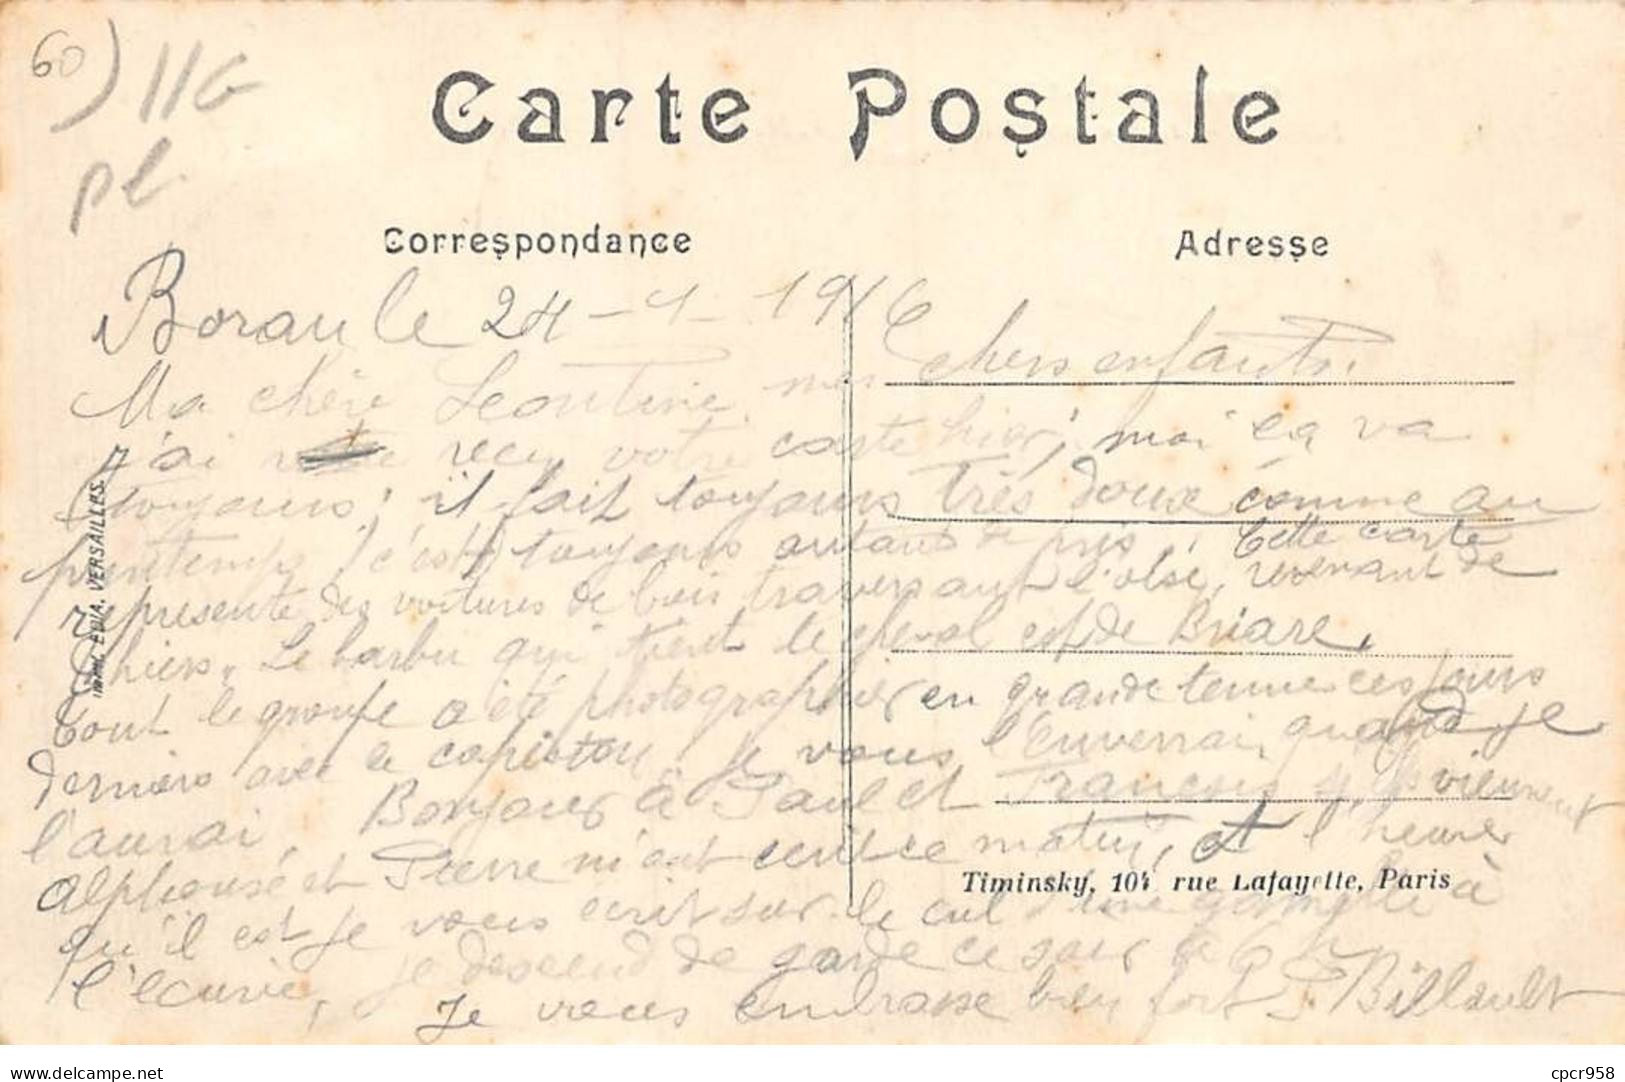 60) 116
pl
Carte Postale
Correspondance
Adresse
Boran le 24-1-1916
Ma chère Leontine, mes chers enfants.
j'ai recu votre carte hier, moi ça va
toujours, il fait toujours très doux comme au
printemps, c'est toujours autant de pris. Cette carte
represente des voitures de bois traversant l'oise, revenant de
Thiers. Le barbu qui tient le cheval est de Briare.
Tout le groupe a été photographier en grande tenue ces jours
derniers avec le capiston. Je vous l'enverrai quand je
l'aurai. Bonjour à Paul et François s'ils viennent
Alphonse et Pierre m'ont ecrit ce matin, et l'heure
qu'il est je vous ecrit sur le cul d'une gamelle à
l'écurie, je descend de garde ce soir à 6 h
Je vous embrasse bien fort P Billault
Timinsky, 104 rue Lafayette, Paris
Imme. EDIA. VERSAILLES.
delcampe.net
cpcr958